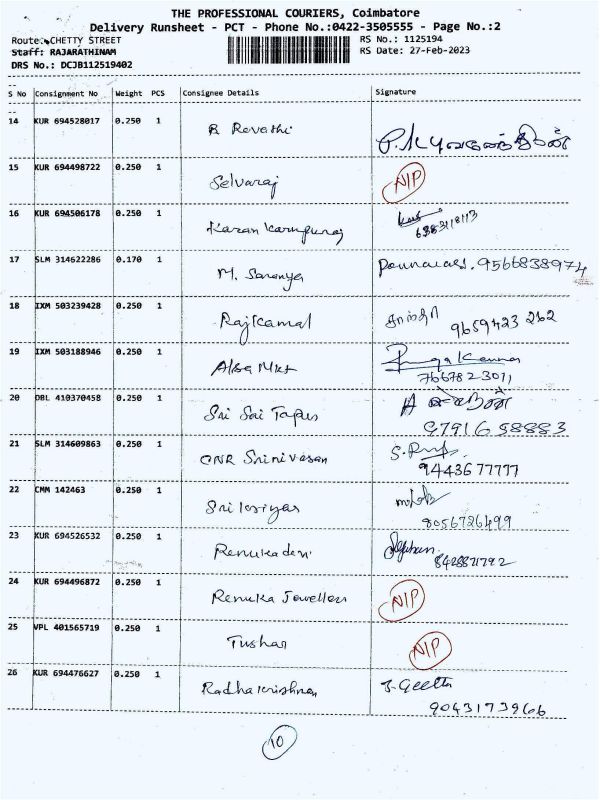 THE PROFESSIONAL COURIERS, Coimbatore
Delivery Runsheet - PCT - Phone No.:0422-3505555 - Page No.:2
Route: CHETTY STREET
RS No.: 1125194
Staff: RAJARATHINAM
RS Date: 27-Feb-2023
DRS No.: DCJB112519402
S No Consignment No Weight PCS Consignee Details Signature
14 KUR 694528017 0.250 1 R Revathi
15 KUR 694498722 0.250 1 Selvaraj N/P
16 KUR 694506178 0.250 1 Karan
6383118113
17 SLM 314622286 0.170 1 M. Saranya 9566838974
18 IXM 503239428 0.250 1 Rajkamal 9659423 262
19 IXM 503188946 0.250 1 Mkt
7667823011
20 DBL 410370458 0.250 1 Sri Sai
9791658883
21 SLM 314609863 0.250 1 CNR Srinivasan
9443677777
22 CMM 142463 0.250 1
8056726499
23 KUR 694526532 0.250 1 Renukadevi
8428871792
24 KUR 694496872 0.250 1 Renuka Jewellers N/P
25 VPL 401565719 0.250 1 Tushar N/P
26 KUR 694476627 0.250 1 Radhakrishnan J. Geetha
9043173966
10